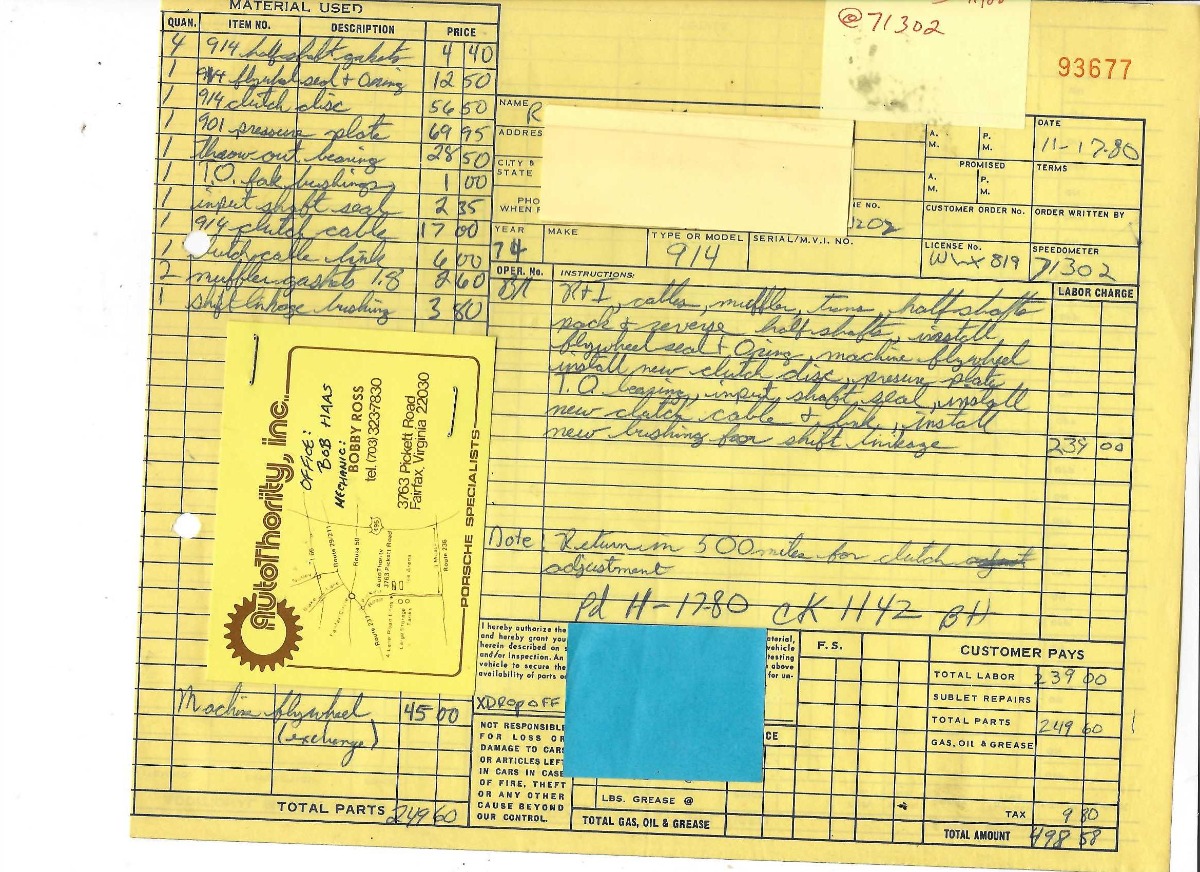 MATERIAL USED
QUAN. ITEM NO. DESCRIPTION PRICE
4 914 halfshaft gaskets 4 40
1 914 flywheel seal + Oring 12 50
1 914 clutch disc 56 50
1 901 pressure plate 69 95
1 throwout bearing 28 50
1 T.O. fork bushings 1 00
1 input shaft seal 2 35
1 914 clutch cable 17 00
1 clutch cable link 6 00
2 muffler gaskets 1.8 2 60
1 shift linkage bushing 3 80
@ 71302
93677
NAME R
ADDRES
CITY &
STATE
PHO
WHEN
E NO.
1202
A. M. P. M.
PROMISED
A. M. P. M.
DATE
11-17-80
TERMS
CUSTOMER ORDER No. ORDER WRITTEN BY
YEAR MAKE TYPE OR MODEL SERIAL/M.V.I. NO. LICENSE No. SPEEDOMETER
74 914 WLX 819 71302
OPER. No. INSTRUCTIONS: LABOR CHARGE
BH R+I, cables, muffler, trans, half shafts
pack & reverse half shafts, install
flywheel seal + Oring, machine flywheel
install new clutch disc, presure plate
T.O. bearing, input shaft seal, install
new clutch cable & link, install
new bushing foor shift linkeage 239 00
Note: Return in 500 miles for clutch adjust
adjustment
Pd 11-17-80 CK 1142 BH
AutoThority, inc.
OFFICE:
BOB HAAS
MECHANIC:
BOBBY ROSS
tel. (703) 323-7830
3763 Pickett Road
Fairfax, Virginia 22030
PORSCHE SPECIALISTS
Route 29/211
Route 50
495
AutoThority
3763 Pickett Road
Route 236
Route 237
Machine flywheel 45 00
(exchange)
TOTAL PARTS 249 60
I hereby authorize the
and hereby grant you
herein described on s
and/or inspection. An
vehicle to secure the
availability of parts o
aterial,
vehicle
testing
above
for un-
X DROP OFF
NOT RESPONSIBLE
FOR LOSS OR
DAMAGE TO CARS
OR ARTICLES LEFT
IN CARS IN CASE
OF FIRE, THEFT
OR ANY OTHER
CAUSE BEYOND
OUR CONTROL.
CE
LBS. GREASE @
TOTAL GAS, OIL & GREASE
F.S.
CUSTOMER PAYS
TOTAL LABOR 239 00
SUBLET REPAIRS
TOTAL PARTS 249 60
GAS, OIL & GREASE
TAX 9 80
TOTAL AMOUNT 498 58